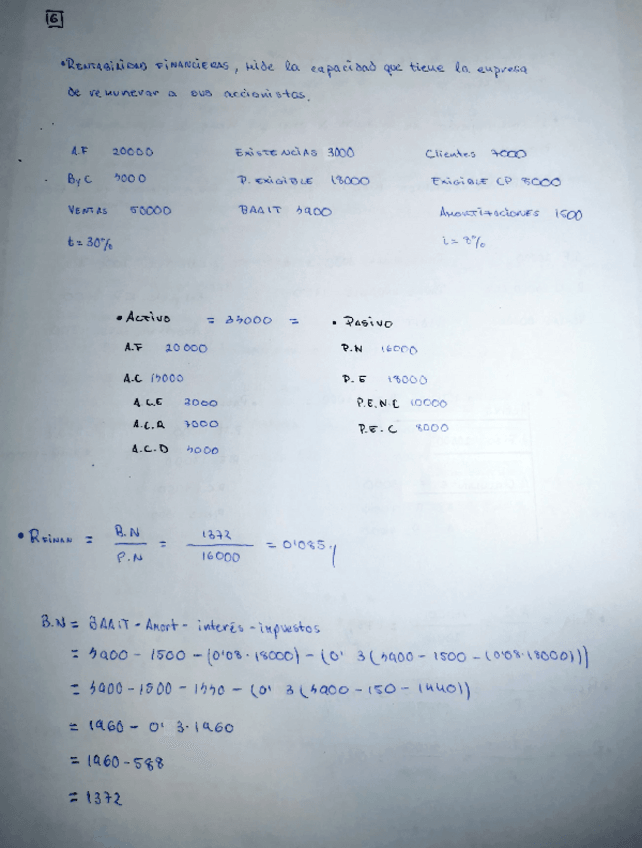 6
• RENTABILIDAD FINANCIERAS, mide la capacidad que tiene la empresa
de remunerar a sus accionistas.
A.F 20000 EXISTENCIAS 3000 Clientes 7000
ByC 4000 P. EXIGIBLE 18000 EXIGIBLE CP 8000
VENTAS 50000 BAAIT 4900 AMORTIZACIONES 1500
t = 30% i = 8%
• ACTIVO = 34000 = • PASIVO
A.F 20000 P.N 16000
A.C 14000 P.E 18000
A.C.E 3000 P.E.N.C 10000
A.C.R 7000 P.E.C 8000
A.C.D 4000
• RFINAN = B.N / P.N = 1372 / 16000 = 0'085
B.N = BAAIT - Amort - interés - impuestos
= 4900 - 1500 - (0'08 · 18000) - (0' 3 (4900 - 1500 - (0'08·18000)))
= 4900 - 1500 - 1440 - (0' 3 (4900 - 150 - 1440))
= 1960 - 0' 3·1960
= 1960 - 588
= 1372